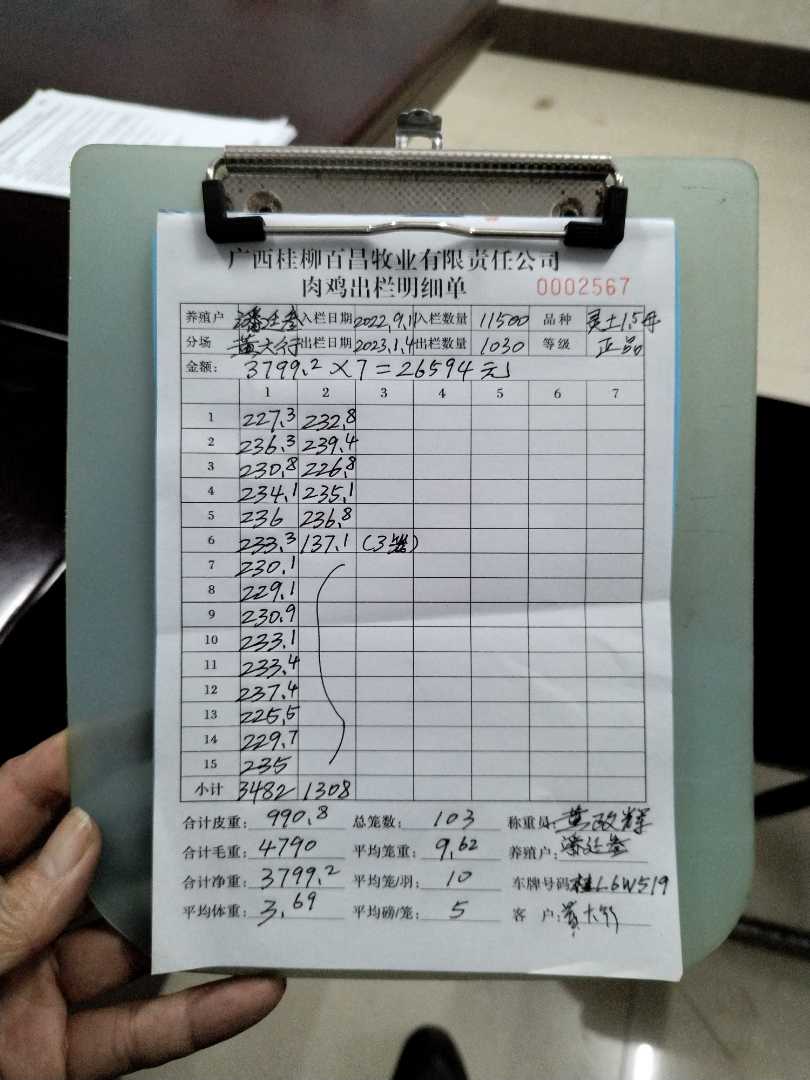 广西桂柳百昌牧业有限责任公司
肉鸡出栏明细单 0002567
养殖户 潘廷参 入栏日期 2022,9,11 入栏数量 11500 品种 灵土15号
分场 黄大行 出栏日期 2023,1,4 出栏数量 1030 等级 正品
金额: 3799.2×7=26594元
1 2 3 4 5 6 7
1 227.3 232.8
2 236.3 239.4
3 230.8 226.8
4 234.1 235.1
5 236 236.8
6 233.3 137.1 (3笼)
7 230.1
8 229.1
9 230.9
10 233.1
11 233.4
12 237.4
13 225.5
14 229.7
15 235
小计 3482 1308
合计皮重: 990.8 总笼数: 103 称重员: 黄政辉
合计毛重: 4790 平均笼重: 9.62 养殖户: 潘廷参
合计净重: 3799.2 平均笼/羽: 10 车牌号码: 桂L6W519
平均体重: 3.69 平均磅/笼: 5 客户: 黄大行